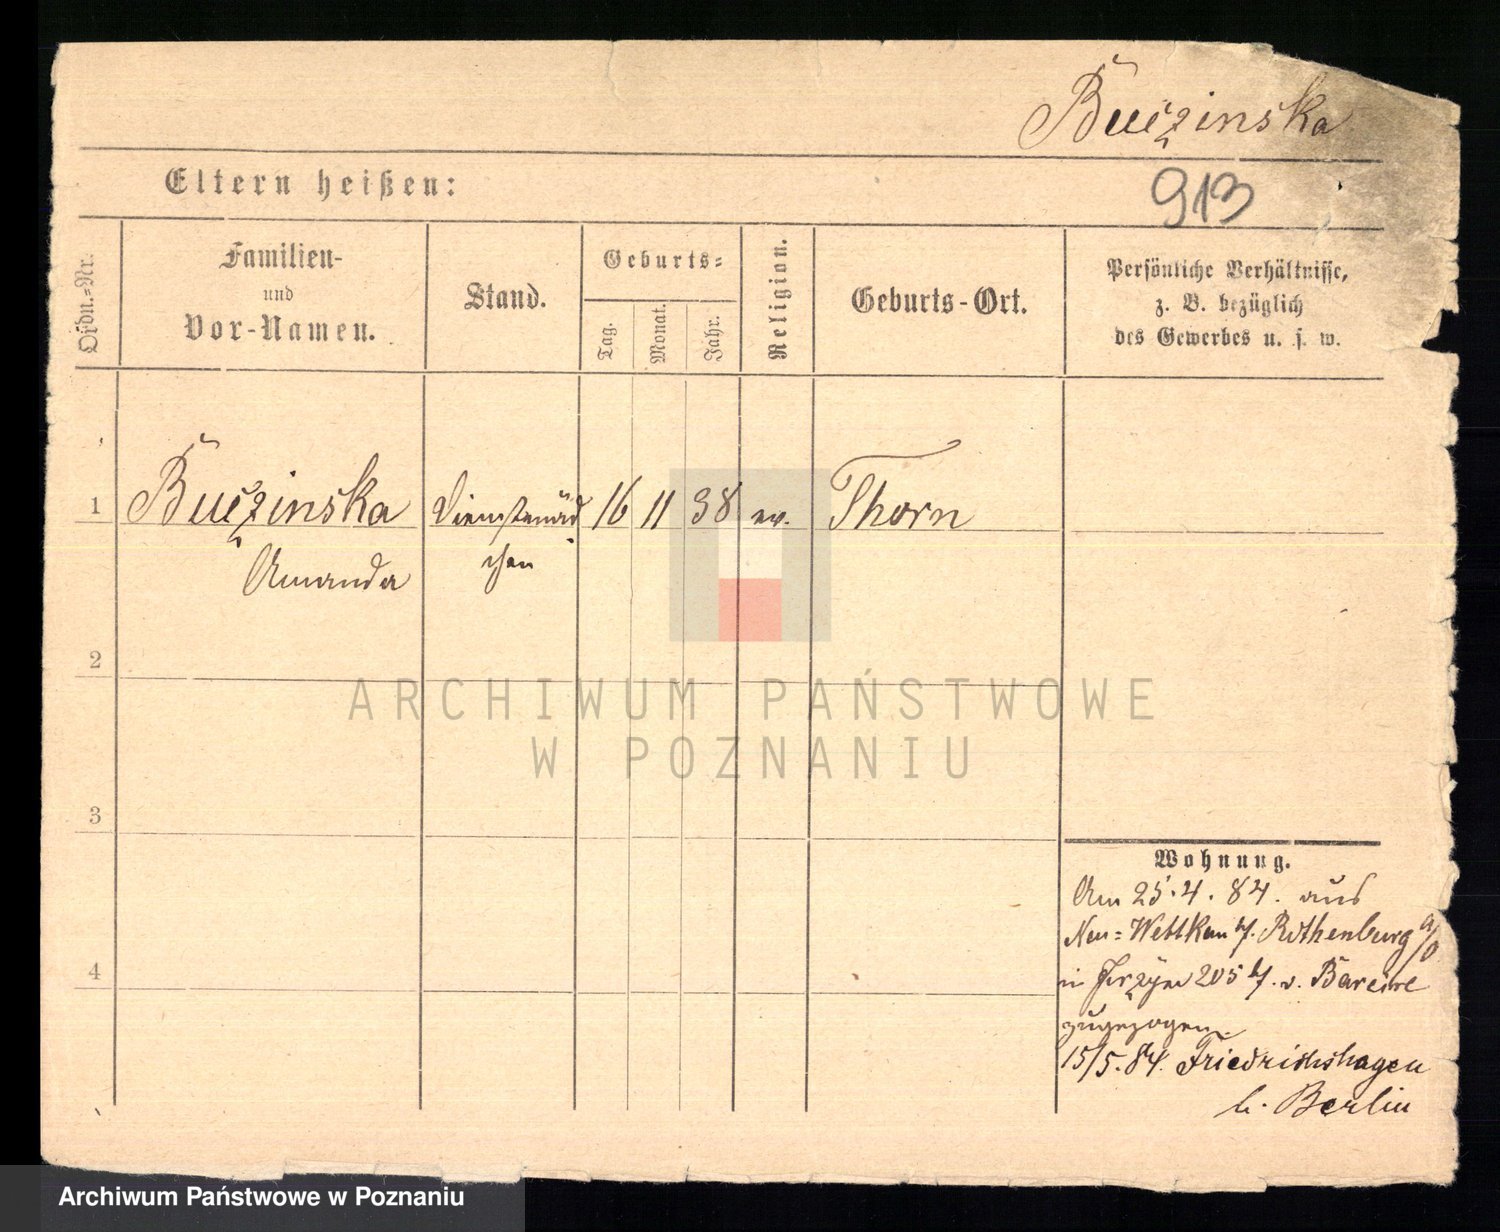 Buczinska
913
Eltern heißen:
Ordn.-Nr.
Familien-
und
Vor-Namen.
Stand.
Geburts-
Tag.
Monat.
Jahr.
Religion.
Geburts-Ort.
Persönliche Verhältnisse,
z. B. bezüglich
des Gewerbes u. s. w.
1
Buczinska
Amanda
Dienstmäd
chen
16
11
38
ev.
Thorn
2
3
4
Wohnung.
Am 25.4.84. aus
Neu= b/. Rothenburg a/O
in 205 b/. v.
zugezogen
15/5.84. Friedrichshagen
b. Berlin
ARCHIWUM PAŃSTWOWE
W POZNANIU
Archiwum Państwowe w Poznaniu